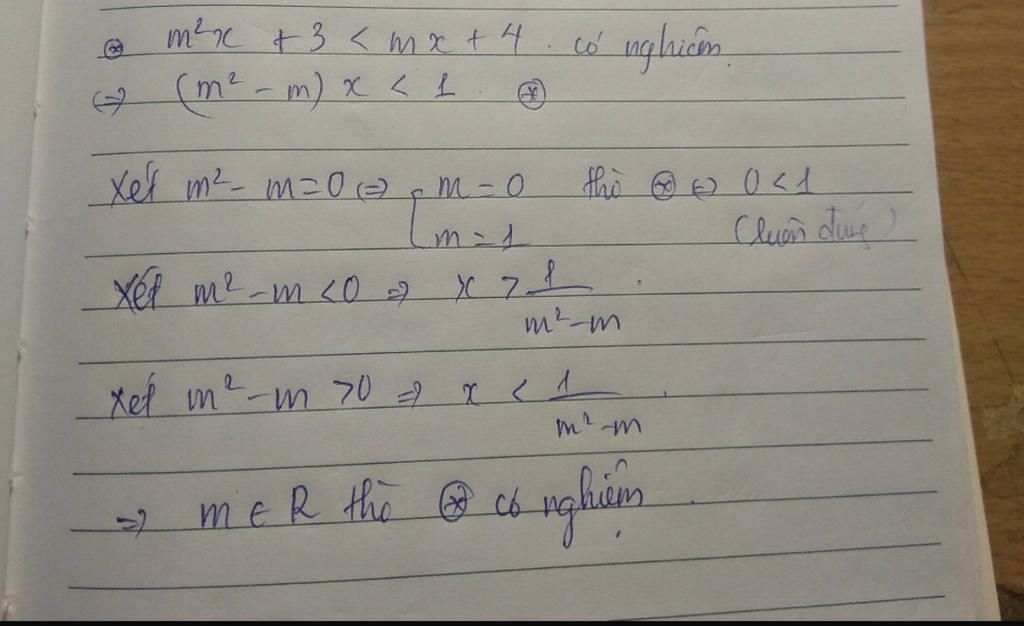 ⊛ m²x + 3 < mx + 4 . có nghiệm.
(=) (m² - m) x < 1 . ⊛
Xét m² - m = 0 (=) [ m = 0 thì ⊛ (=) 0 < 1
m = 1 (luôn đúng)
Xét m² - m < 0 => x > 1/(m² - m) .
Xét m² - m > 0 => x < 1/(m² - m) .
=> m ∈ R thì ⊛ có nghiệm .